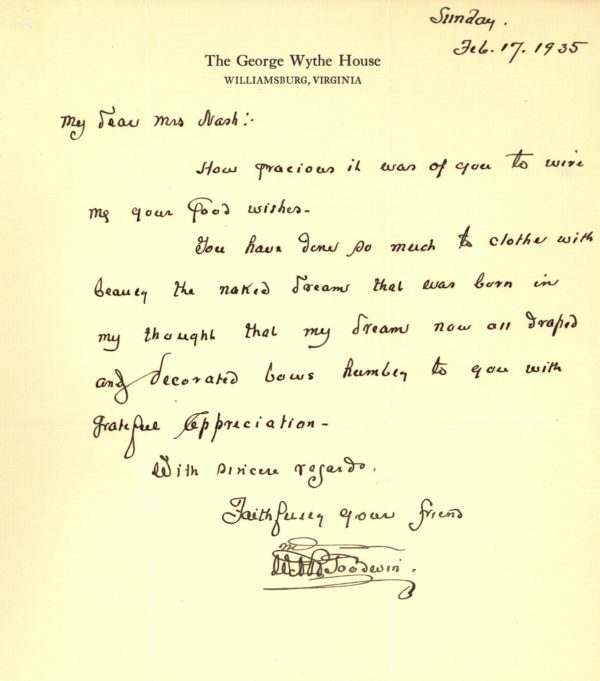 Sunday.
Feb. 17. 1935
The George Wythe House
WILLIAMSBURG, VIRGINIA
My dear Mrs Nash:-
How gracious it was of you to wire
me your good wishes-
You have done so much to clothe with
beauty the naked dream that was born in
my thought that my dream now all draped
and decorated bows humbly to you with
grateful appreciation-
With sincere regards.
Faithfully your friend
Goodwin.